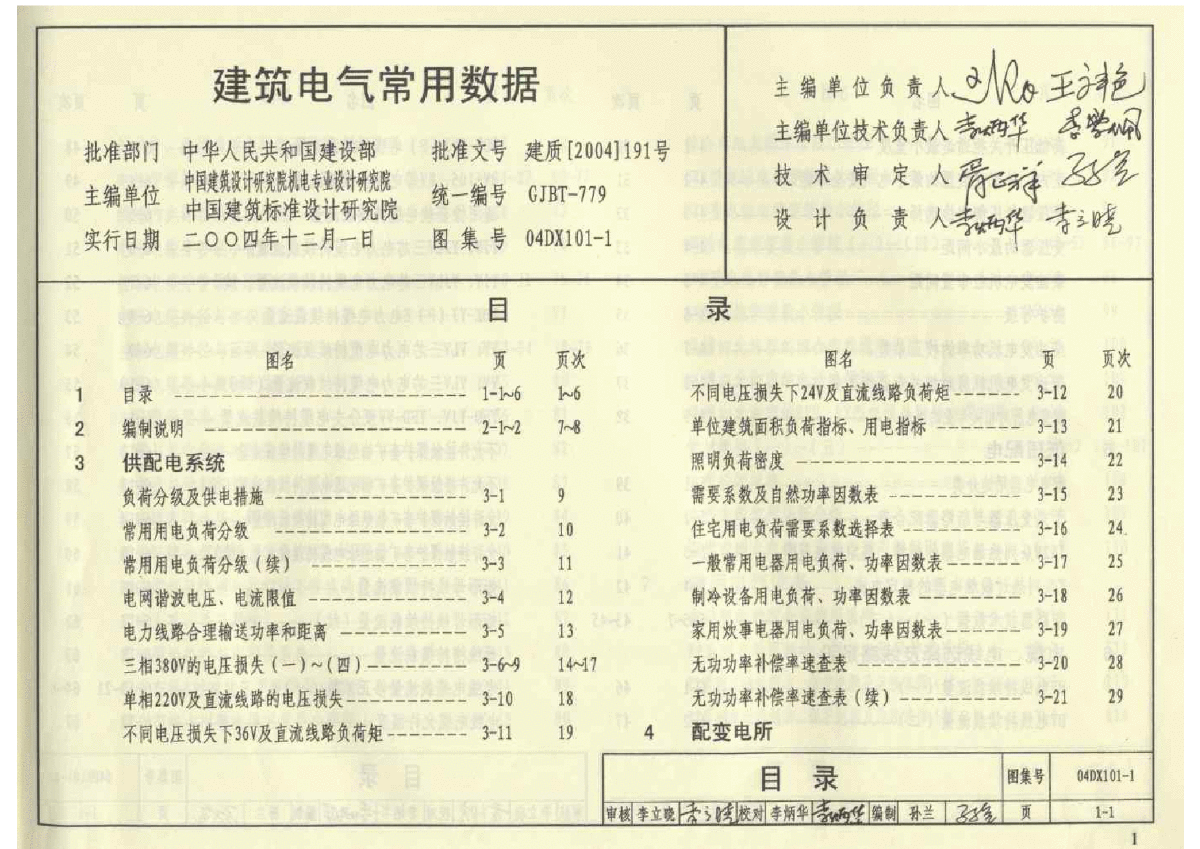 建筑电气常用数据
批准部门 中华人民共和国建设部 批准文号 建质[2004]191号
主编单位 中国建筑设计研究院机电专业设计研究院 中国建筑标准设计研究院 统一编号 GJBT-779
实行日期 二〇〇四年十二月一日 图集号 04DX101-1
主编单位负责人
主编单位技术负责人 李炳华
技术审定人
设计负责人 李炳华 李立晓
目 录
图名 页 页次
1 目录 1-1~6 1~6
2 编制说明 2-1~2 7~8
3 供配电系统
负荷分级及供电措施 3-1 9
常用用电负荷分级 3-2 10
常用用电负荷分级(续) 3-3 11
电网谐波电压、电流限值 3-4 12
电力线路合理输送功率和距离 3-5 13
三相380V的电压损失(一)~(四) 3-6~9 14~17
单相220V及直流线路的电压损失 3-10 18
不同电压损失下36V及直流线路负荷矩 3-11 19
图名 页 页次
不同电压损失下24V及直流线路负荷矩 3-12 20
单位建筑面积负荷指标、用电指标 3-13 21
照明负荷密度 3-14 22
需要系数及自然功率因数表 3-15 23
住宅用电负荷需要系数选择表 3-16 24
一般常用电器用电负荷、功率因数表 3-17 25
制冷设备用电负荷、功率因数表 3-18 26
家用炊事电器用电负荷、功率因数表 3-19 27
无功功率补偿率速查表 3-20 28
无功功率补偿率速查表(续) 3-21 29
4 配变电所
目 录 图集号 04DX101-1
审核 李立晓 李立晓 校对 李炳华 李炳华 编制 孙兰 页 1-1
1